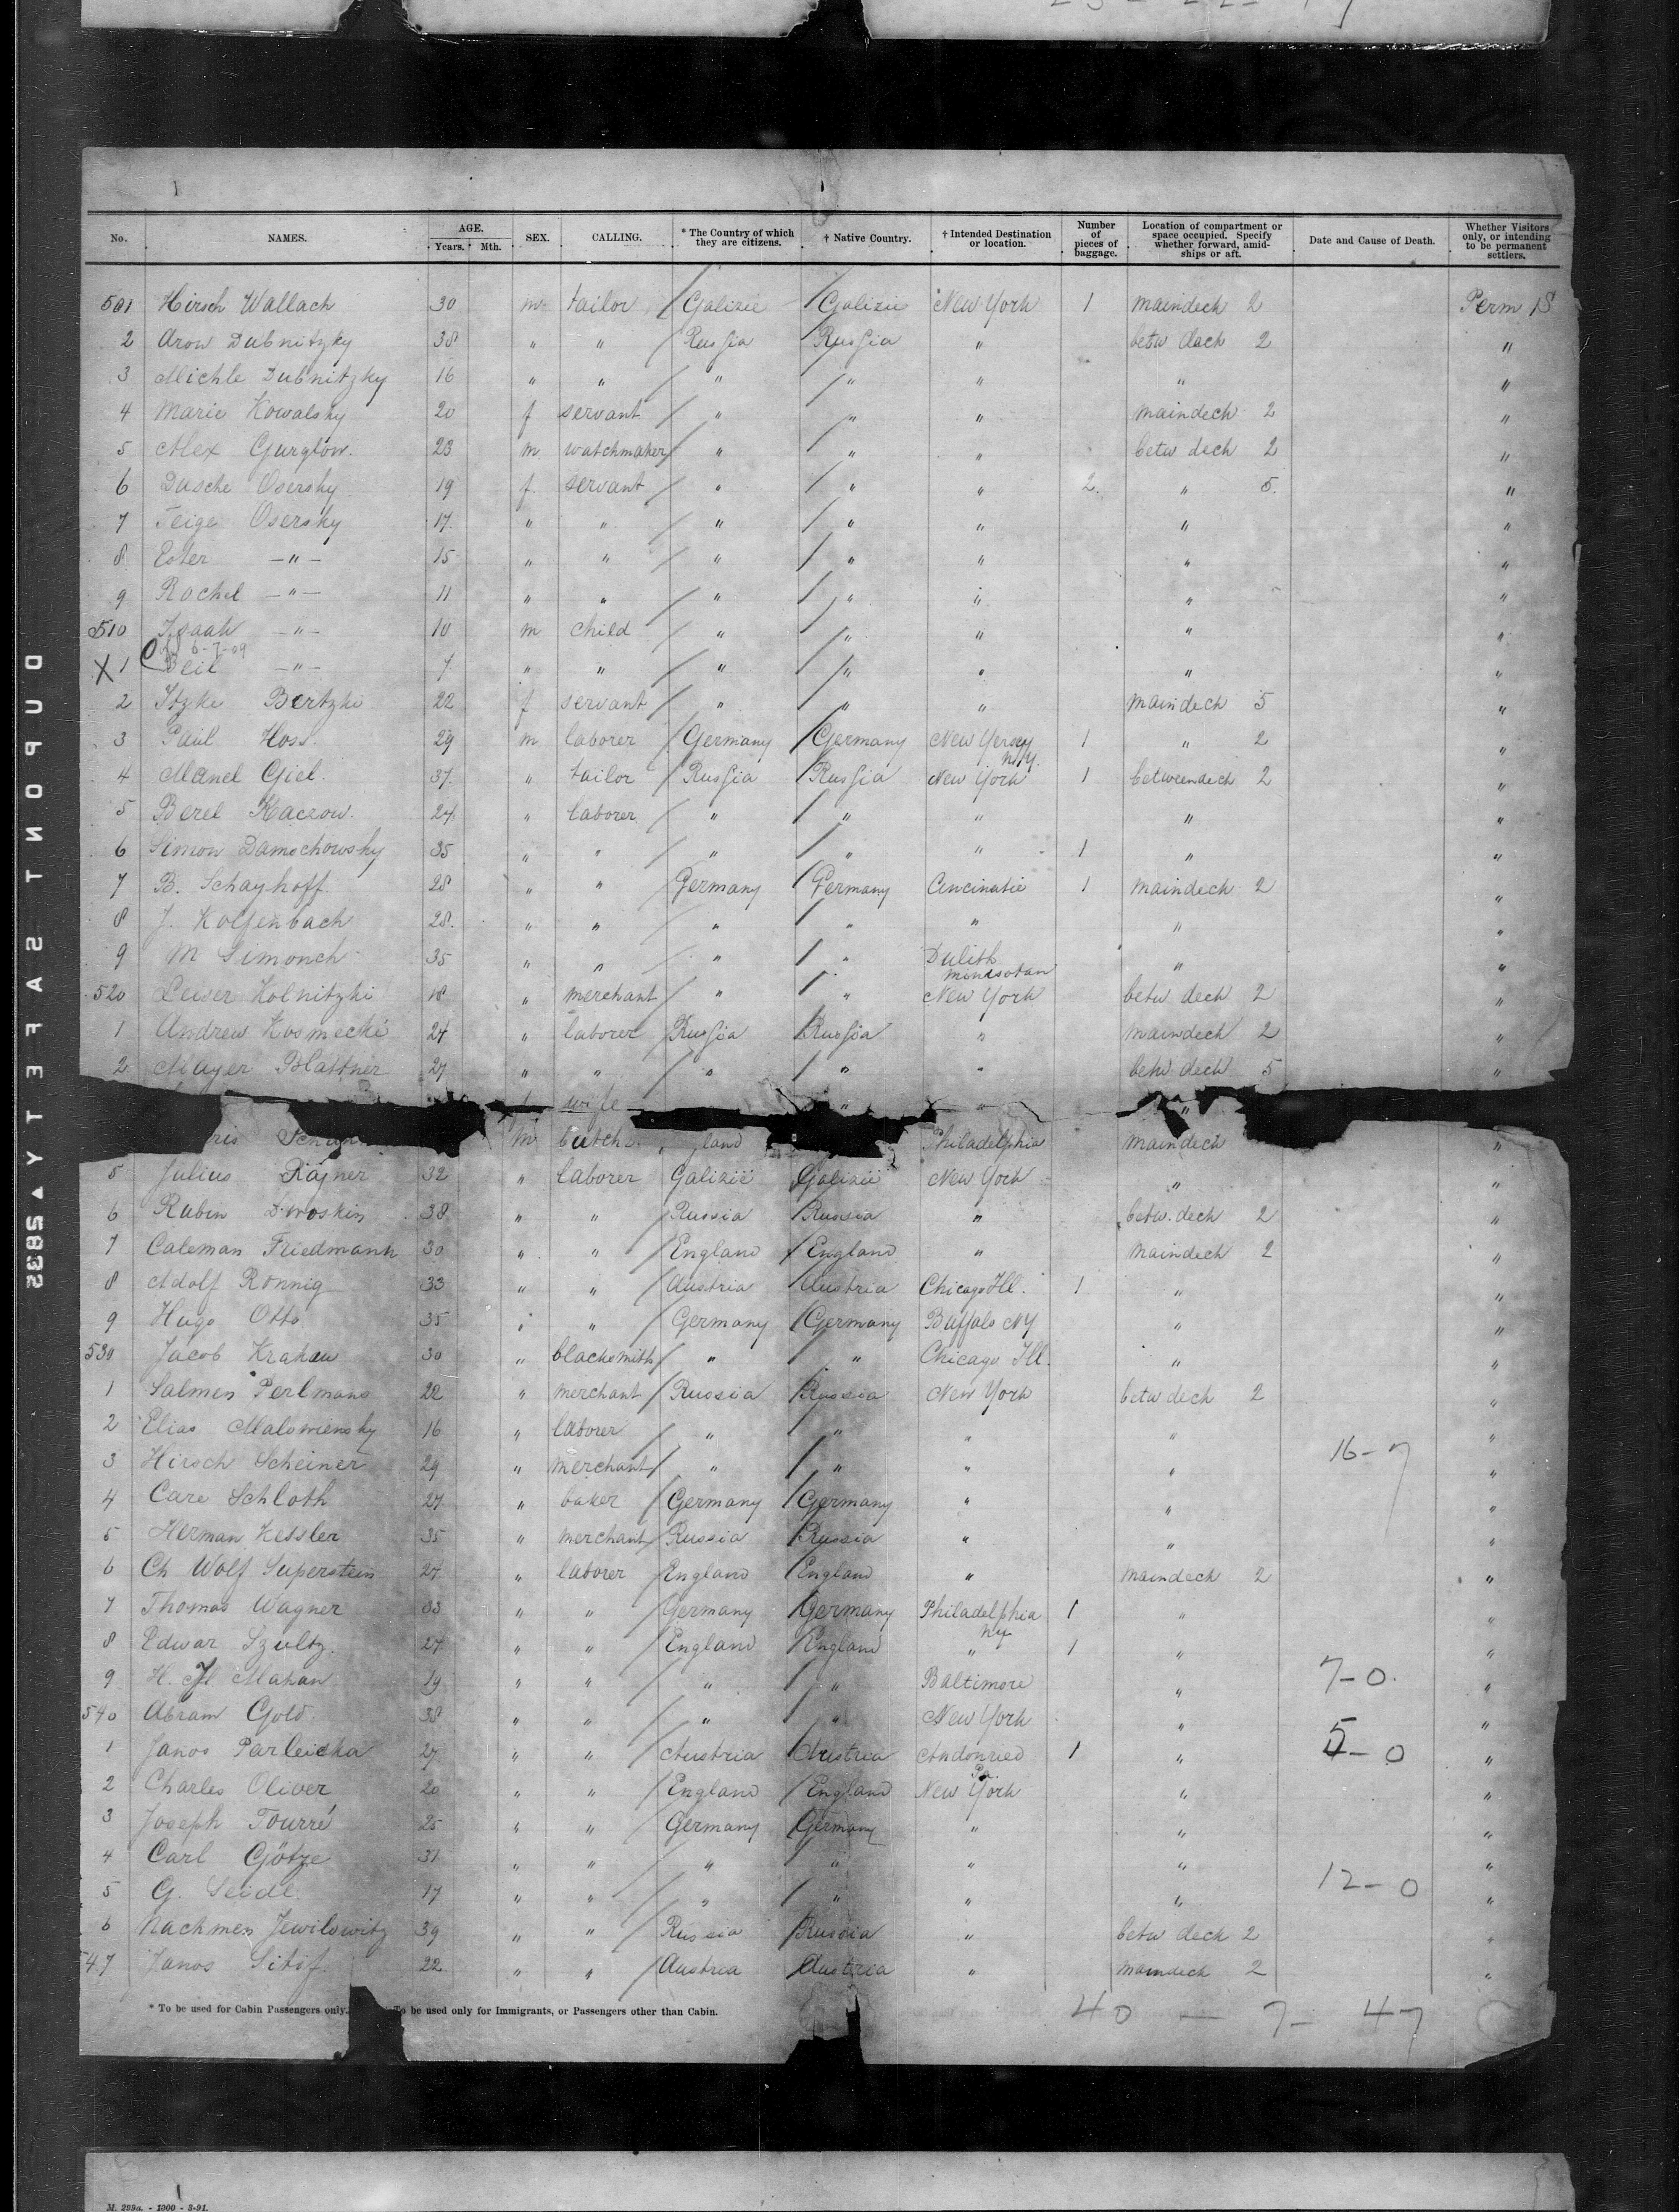 DUPONT SAFETY ▲ 5832
No. NAMES. AGE. Years. Mth. SEX. CALLING. * The Country of which they are citizens. † Native Country. † Intended Destination or location. Number of pieces of baggage. Location of compartment or space occupied. Specify whether forward, amidships or aft. Date and Cause of Death. Whether Visitors only, or intending to be permanent settlers.
501 Hirsch Wallach 30 m tailor Galizie Galizie New York 1 maindeck 2 Perm S
2 Arow Dubnitzky 38 " " Russia Russia " betw deck 2 "
3 Michle Dubnitzky 16 " " " " " " "
4 Marie Kowalsky 20 f servant " " " maindeck 2 "
5 Alex Gurglow. 23 m watchmaker " " " betw deck 2 "
6 Dasche Osersky 19 f. servant " " " 2. " 5. "
7 Teige Osersky 17. " " " " " " "
8 Ester — " — 15 " " " " " " "
9 Rachel — " — 11 " " " " " " "
510 Isaak — " — 10 m child " " " " "
6-7-09
X 1 Beil — " — 7 " " " " " " "
2 Itzke Bertzki 22 f servant " " " maindeck 5 "
3 Paul Hoss. 29 m laborer Germany Germany New Yersey N.Y. 1 " 2 "
4 Manel Giel. 37. " tailor Russia Russia New York 1 betweendeck 2 "
5 Berel Kaczow. 24. " laborer " " " " "
6 Simon Damschowsky 35 " " " " " 1 " "
7 B. Schayhoff 28 " " Germany Germany Cincinatie 1 maindeck 2 "
8 J. Kolfenbach 28. " " " " " " "
9 M Simonch 35 " " " " Dulith Minesotan " "
520 Leiser Kolnitzki 18 " merchant " " New York betw deck 2 "
1 Andrew Kosmecki 24 " laborer Russia Russia " maindeck 2 "
2 Mayer Blattner 27 " " " " " betw deck 5 "
wife " " "
m Philadelphia maindeck "
5 Julius Rajner 32 " laborer Galizië Galizië New York " "
6 Rubin Dwoskin 38 " " Russia Russia " betw. deck 2 "
7 Caleman Friedmann 30 " " England England " maindeck 2 "
8 Adolf Ronnig 33 " " Austria Austria Chicago Ill. 1 " "
9 Hugo Otto 35 " " Germany Germany Buffalo NY " "
530 Jacob Krakau 30 " blacksmith " " Chicago Ill. " "
1 Salmen Perlmans 22 " merchant Russia Russia New York betw deck 2 "
2 Elias Malowiensky 16 " laborer " " " " "
3 Hirsch Scheiner 29 " merchant " " " " 16-7 "
4 Care Schloth 27 " baker Germany Germany " " "
5 Herman Kessler 35 " merchant Russia Russia " " "
6 Ch Wolf Superstein 24 " laborer England England " maindeck 2 "
7 Thomas Wagner 33 " " Germany Germany Philadelphia Ny 1 " "
8 Edwar Szultz. 24 " " England England " 1 " "
9 H. H. Mahan 19 " " " " Baltimore " 7-0. "
540 Abram Gold. 38 " " " " New York " "
1 Janos Parleicka 27 " " Austria Austria Andonried Pa. 1 " 5-0 "
2 Charles Oliver 20 " " England England New York " "
3 Joseph Tourré 25 " " Germany Germany " " "
4 Carl Götze 31 " " " " " " "
5 G. Seidl. 17 " " " " " " 12-0 "
6 Nachmen Jewilowitz 39 " " Russia Russia " betw deck 2 "
547 Janos Sitif. 22 " " Austria Austria " maindeck 2 "
* To be used for Cabin Passengers only. To be used only for Immigrants, or Passengers other than Cabin.
40 — 7 - 47
M. 299a. - 1000 - 3-91.